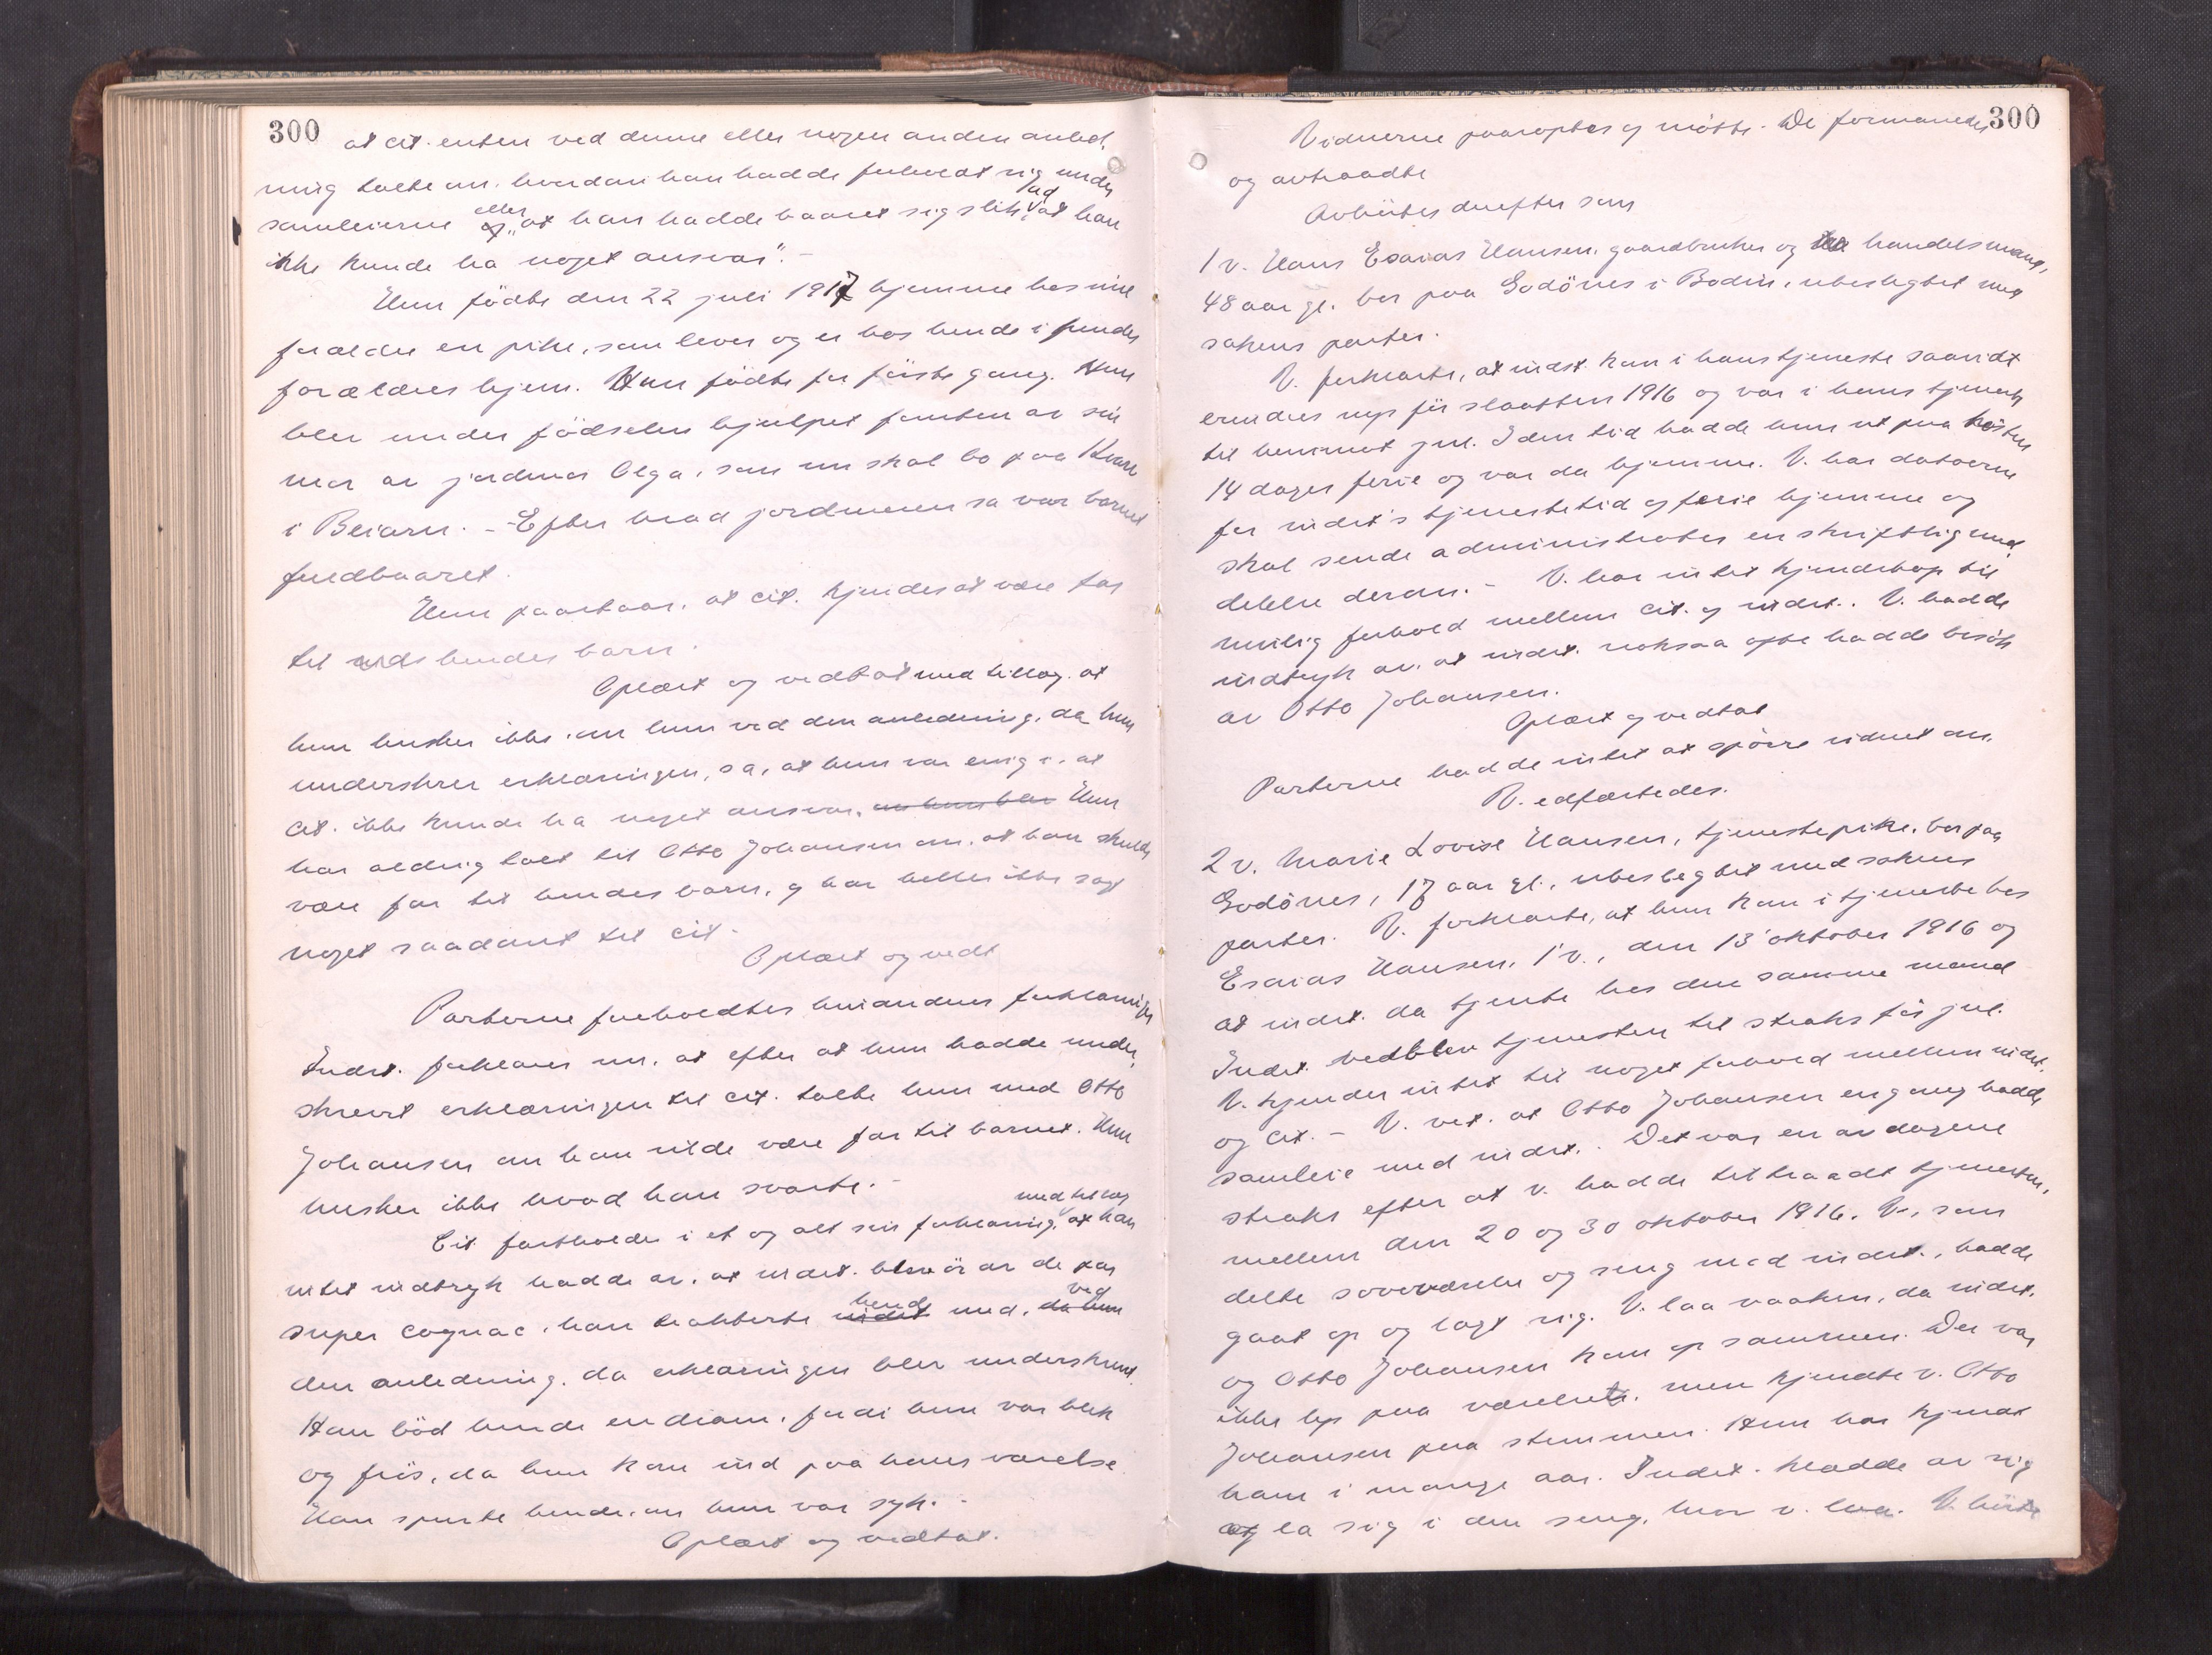 300
at cit. enten ved denne eller nogen anden anled-
ning talte om, hvordan han hadde forholdt sig under
samleierne eller "at han hadde baaret sig slik ad at han
ikke kunde ha noget ansvar". -
Hun fødte den 22 juli 1917 hjemme hos sine
forældre en pike, som lever og er hos hende i hendes
forældres hjem. Hun fødte for første gang. Hun
blev under fødselen hjulpet foruten av sin
mor av jordmor Olga, som nu skal bo paa
i Beiarn. - Efter hvad jordmoren sa var barnet
fuldbaaret.
Hun paastaar, at cit. kjendes at være far
til hendes barn.
Oplæst og vedtat med tillæg, at
hun husker ikke, om hun ved den anledning, da hun
underskrev erklæringen, sa, at hun var enig i, at
cit. ikke kunde ha noget ansvar. Hun
har aldrig talt til Otto Johansen om, at han skulde
være far til hendes barn, og har heller ikke sagt
noget saadant til cit. -
Oplæst og vedt
Parterne foreholdtes hinandens forklaringer
Indst. forklarer nu, at efter at hun hadde under-
skrevet erklæringen til cit. talte hun med Otto
Johansen om han vilde være far til barnet. Hun
husker ikke hvad han svarte. -
Cit. fastholder i et og alt sin forklaring, med tillæg at han
intet indtryk hadde av, at indst. blev ør av de par
super cognac, han trakterte hende med, ved
den anledning, da erklæringen blev underskrevet.
Han bød hende en dram, fordi hun var blek
og frøs, da hun kom ind paa hans værelse.
Han spurte hende, om hun var syk. -
Oplæst og vedtat.
300
Vidnerne paaroptes og møtte. De formanedes
og avtraadte
Avhørtes derefter som
1 v. Hans Esaias Hansen, gaardbruker og handelsmand,
48 aar gl. bor paa Godönes i Bodin, ubeslegtet med
sakens parter.
V. forklarte, at indst. kom i hans tjeneste saavidt
erindres nys før slaatten 1916 og var i hans tjeneste
til henimot jul. I den tid hadde hun ut paa høsten
14 dages ferie og var da hjemme. V. har datoerne
for indst's tjenestetid og ferie hjemme og
skal sende administrator en skriftlig med-
delelse derom. - V. har intet kjendskap til
utilig forhold mellem cit. og indst. V. hadde
indtryk av, at indst. noksaa ofte hadde besøk
av Otto Johansen.
Oplæst og vedtat
Parterne hadde intet at spørre vidnet om.
V. edfæstedes.
2 v. Marie Lovise Hansen, tjenestepike, bor paa
Godönes, 17 aar gl., ubeslegtet med sakens
parter. V. forklarte, at hun kom i tjeneste hos
Esaias Hansen, 1 v., den 13 oktober 1916 og
at indst. da tjente hos den samme mand
Indst. vedblev tjenesten til straks før jul.
V. kjender intet til noget forhold mellem indst.
og cit. - V. vet, at Otto Johansen engang hadde
samleie med indst. Det var en av dagene
straks efter at v. hadde tiltraadt tjenesten,
mellem den 20 og 30 oktober 1916. V., som
delte soveværelse og seng med indst., hadde
gaat op og lagt sig. V. laa vaaken, da indst.
og Otto Johansen kom op sammen. Der var
ikke lys paa værelset, men kjendte v. Otto
Johansen paa stemmen. Hun har kjendt
ham i mange aar. Indst. klædde av sig
og la sig i den seng, hvor v. laa. V. hørte